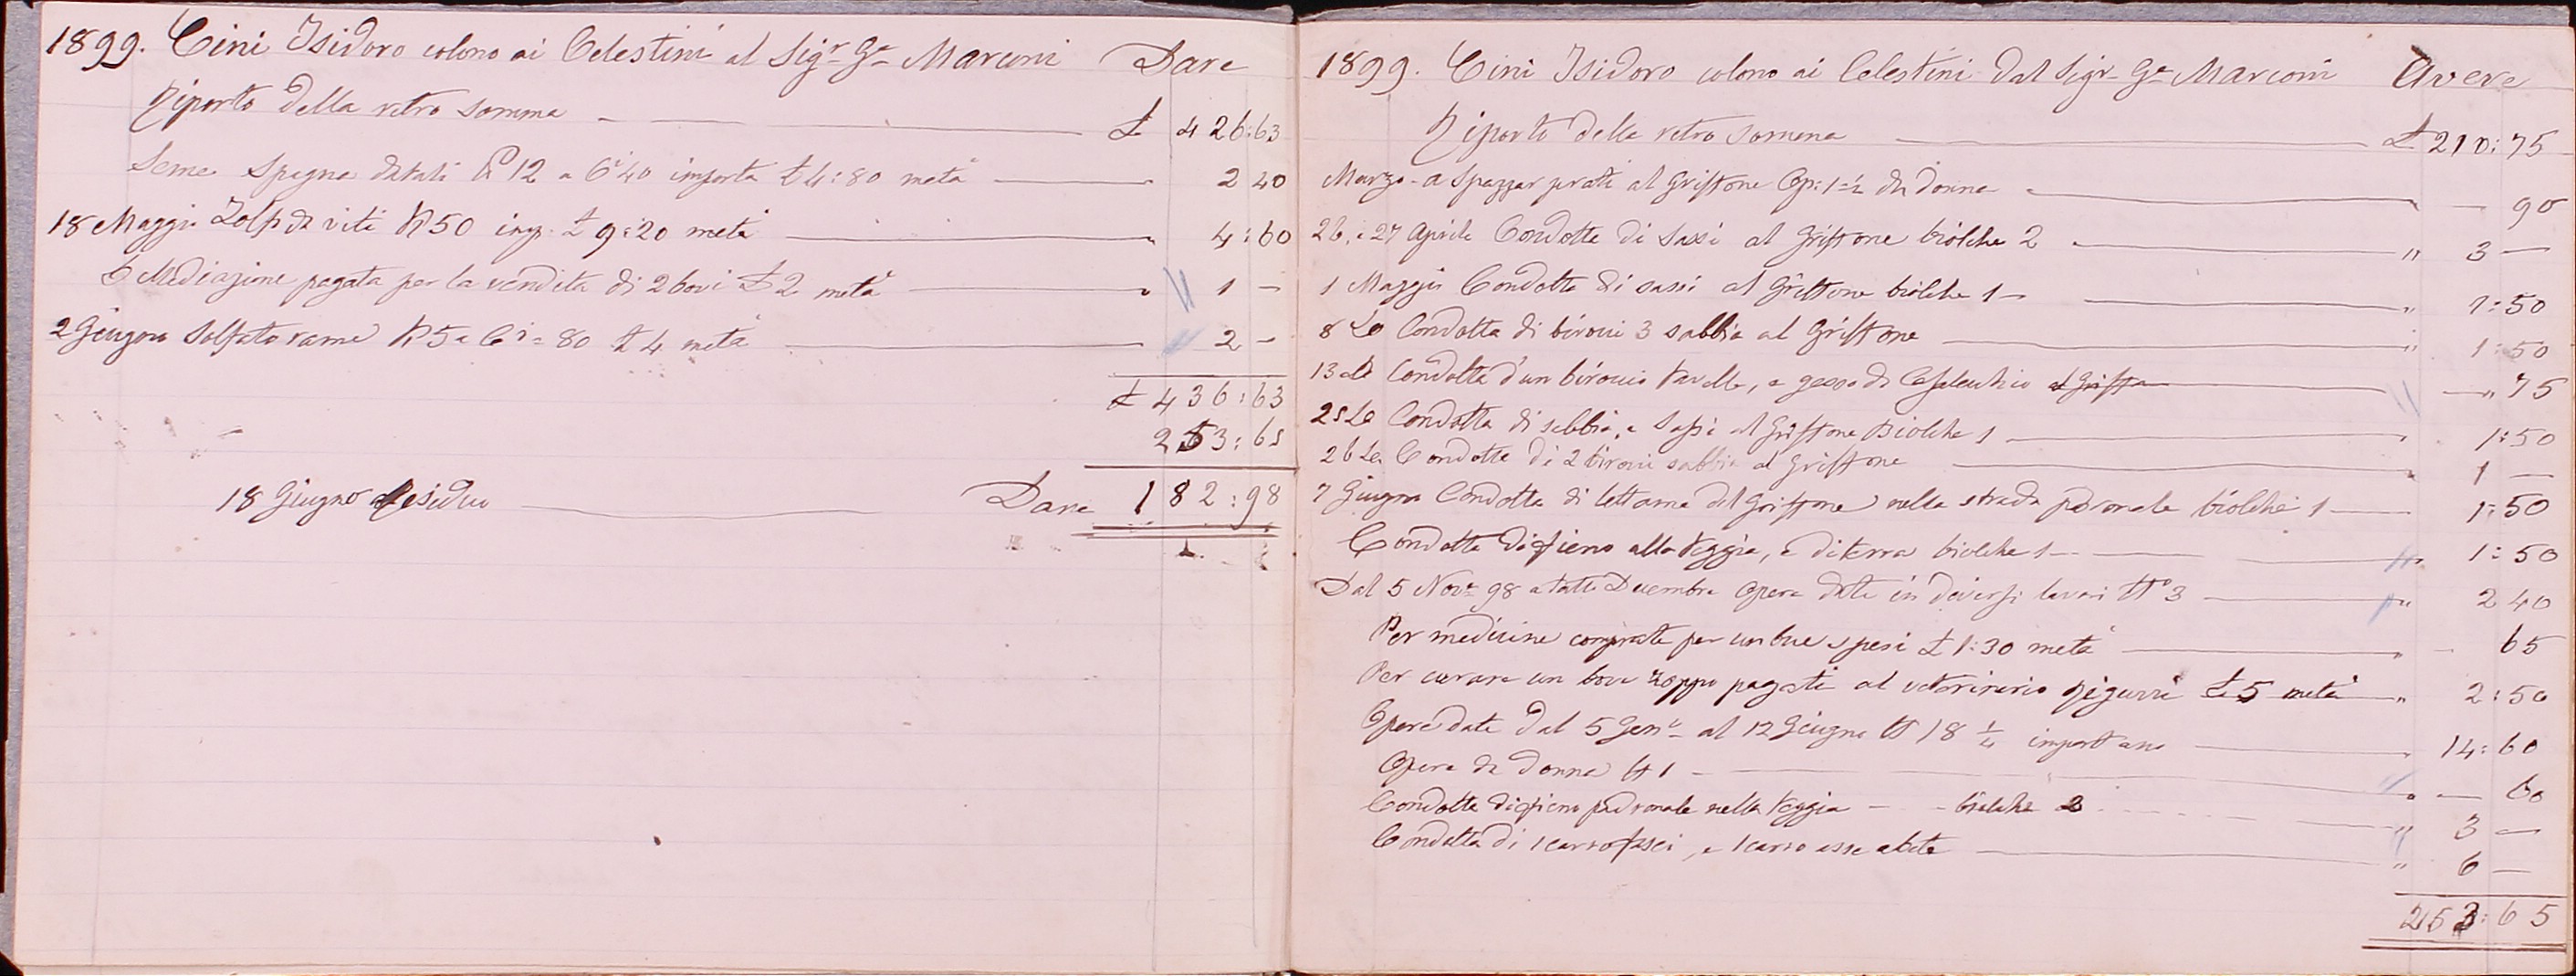 1899. Cini Isidoro colono ai Celestini al Sigr. Ge Marconi Dare
Riporto della retro somma £ 426:63
Seme Spagna datali K 12 a C 40 importa £ 4:80 metà 2 40
18 Maggio Zolfo da viti K 50 imp. £ 9:20 metà 4:60
6 Mediazione pagata per la vendita di 2 bovi £ 2 metà " 1 -
2 Giugno Solfato rame K 5 a Ci = 80 £ 4 metà " 2 -
£ 436:63
253:65
18 Giugno Residuo Dare 182:98
1899. Cini Isidoro colono ai Celestini dal Sigr Ge Marconi Avere
Riporto della retro somma £ 210:75
Marzo a spazzar prati al Griffone Op: 1 1/2 da donna — 90
26, e 27 Aprile Condotte di sassi al Griffone biolche 2 " 3 —
1 Maggio Condotta di sassi al Griffone biolche 1 " 1:50
8 Do Condotta di birocci 3 sabbia al Griffone " 1:50
13 Do Condotta d'un biroccio tavelle, e gesso da Casalecchio — " 75
25 Do Condotta di sabbia, e sassi al Griffone Biolche 1 1:50
26 Do Condotte di 2 birocci sabbia al Griffone 1 —
7 Giugno Condotta di lettame del Griffone nella strada padronale biolche 1 1:50
Condotta di fieno alla Teggia, e di terra biolche 1 " 1:50
Dal 5 Nove 98 a tutto Decembre Opere date in diversi lavori No 3 " 2 40
Per medicine comprate per un bue spesi £ 1:30 metà " 65
Per curare un bove zoppo pagati al veterinario £ 5 metà " 2:50
Opere date dal 5 Gene al 12 Giugno N 18 1/4 importano 14:60
Opera da donna N 1 " — 60
Condotte di fieno padronale nella Teggia biolche 2 " 3 —
Condotta di 1 carro fasci, e 1 carro asse abete " 6 —
253:65